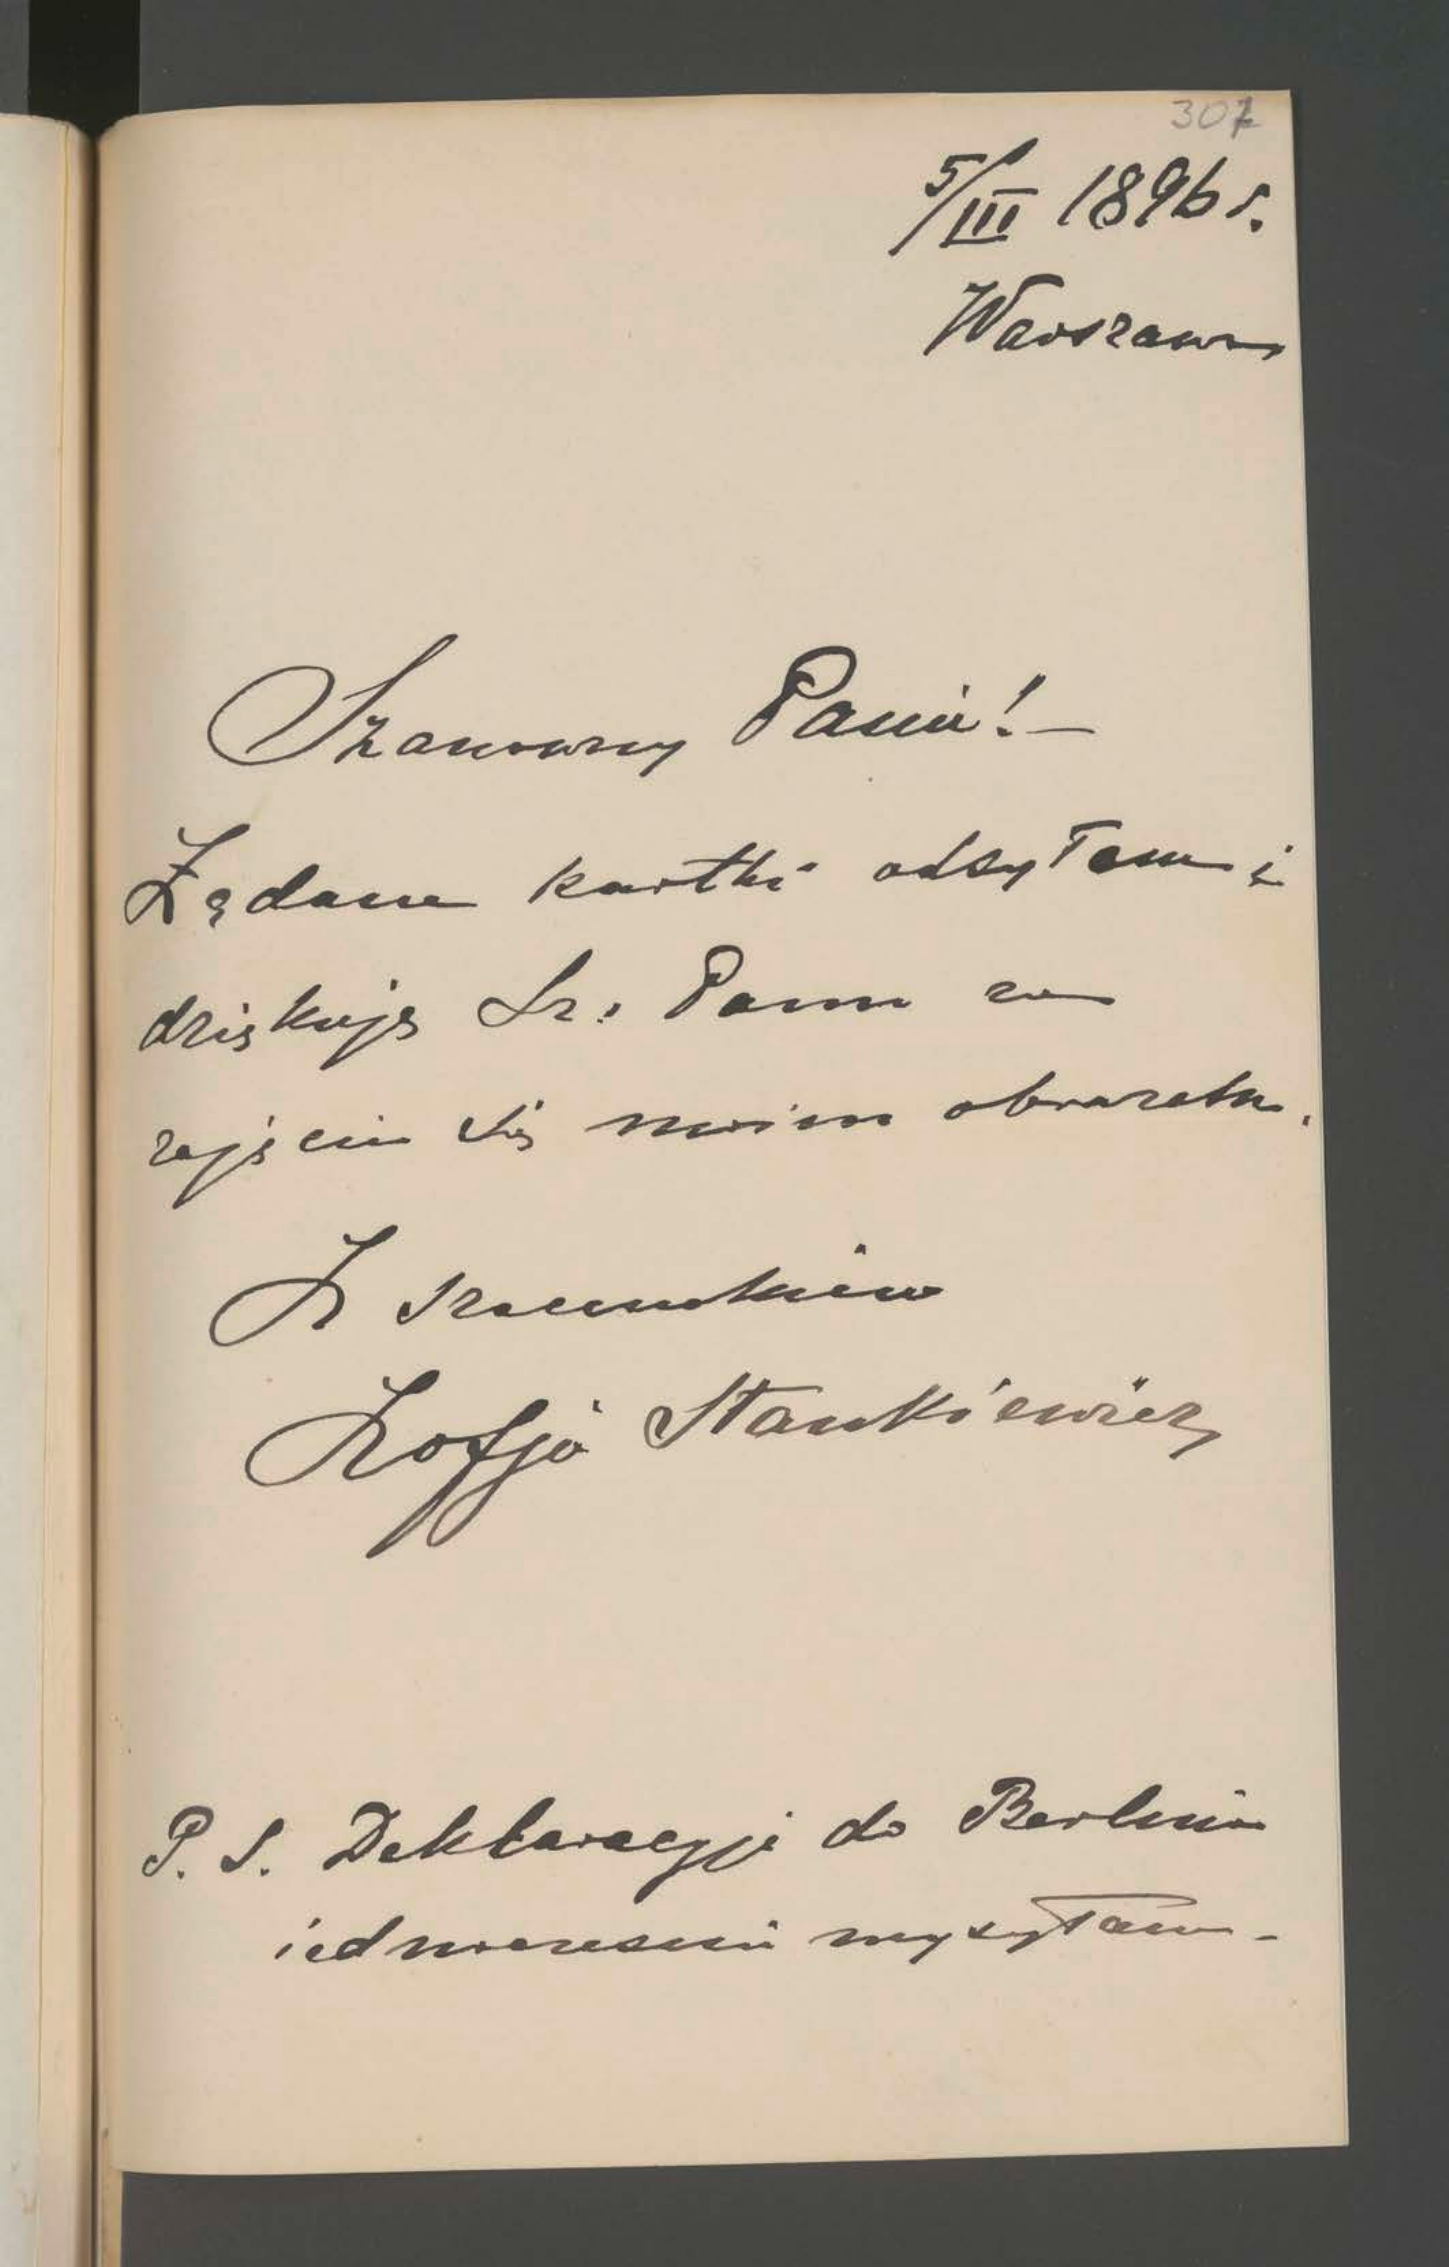 307
5/III 1896 r.
Warszawa
Szanowny Panie! —
Żądane kartki odsyłam i
dziękuję Sz. Panu za
zajęcie się moim obrazkiem.
Z szacunkiem
Zofja Stankiewicz
P. S. Deklaracyje do Berlina
jednocześnie wysyłam. -